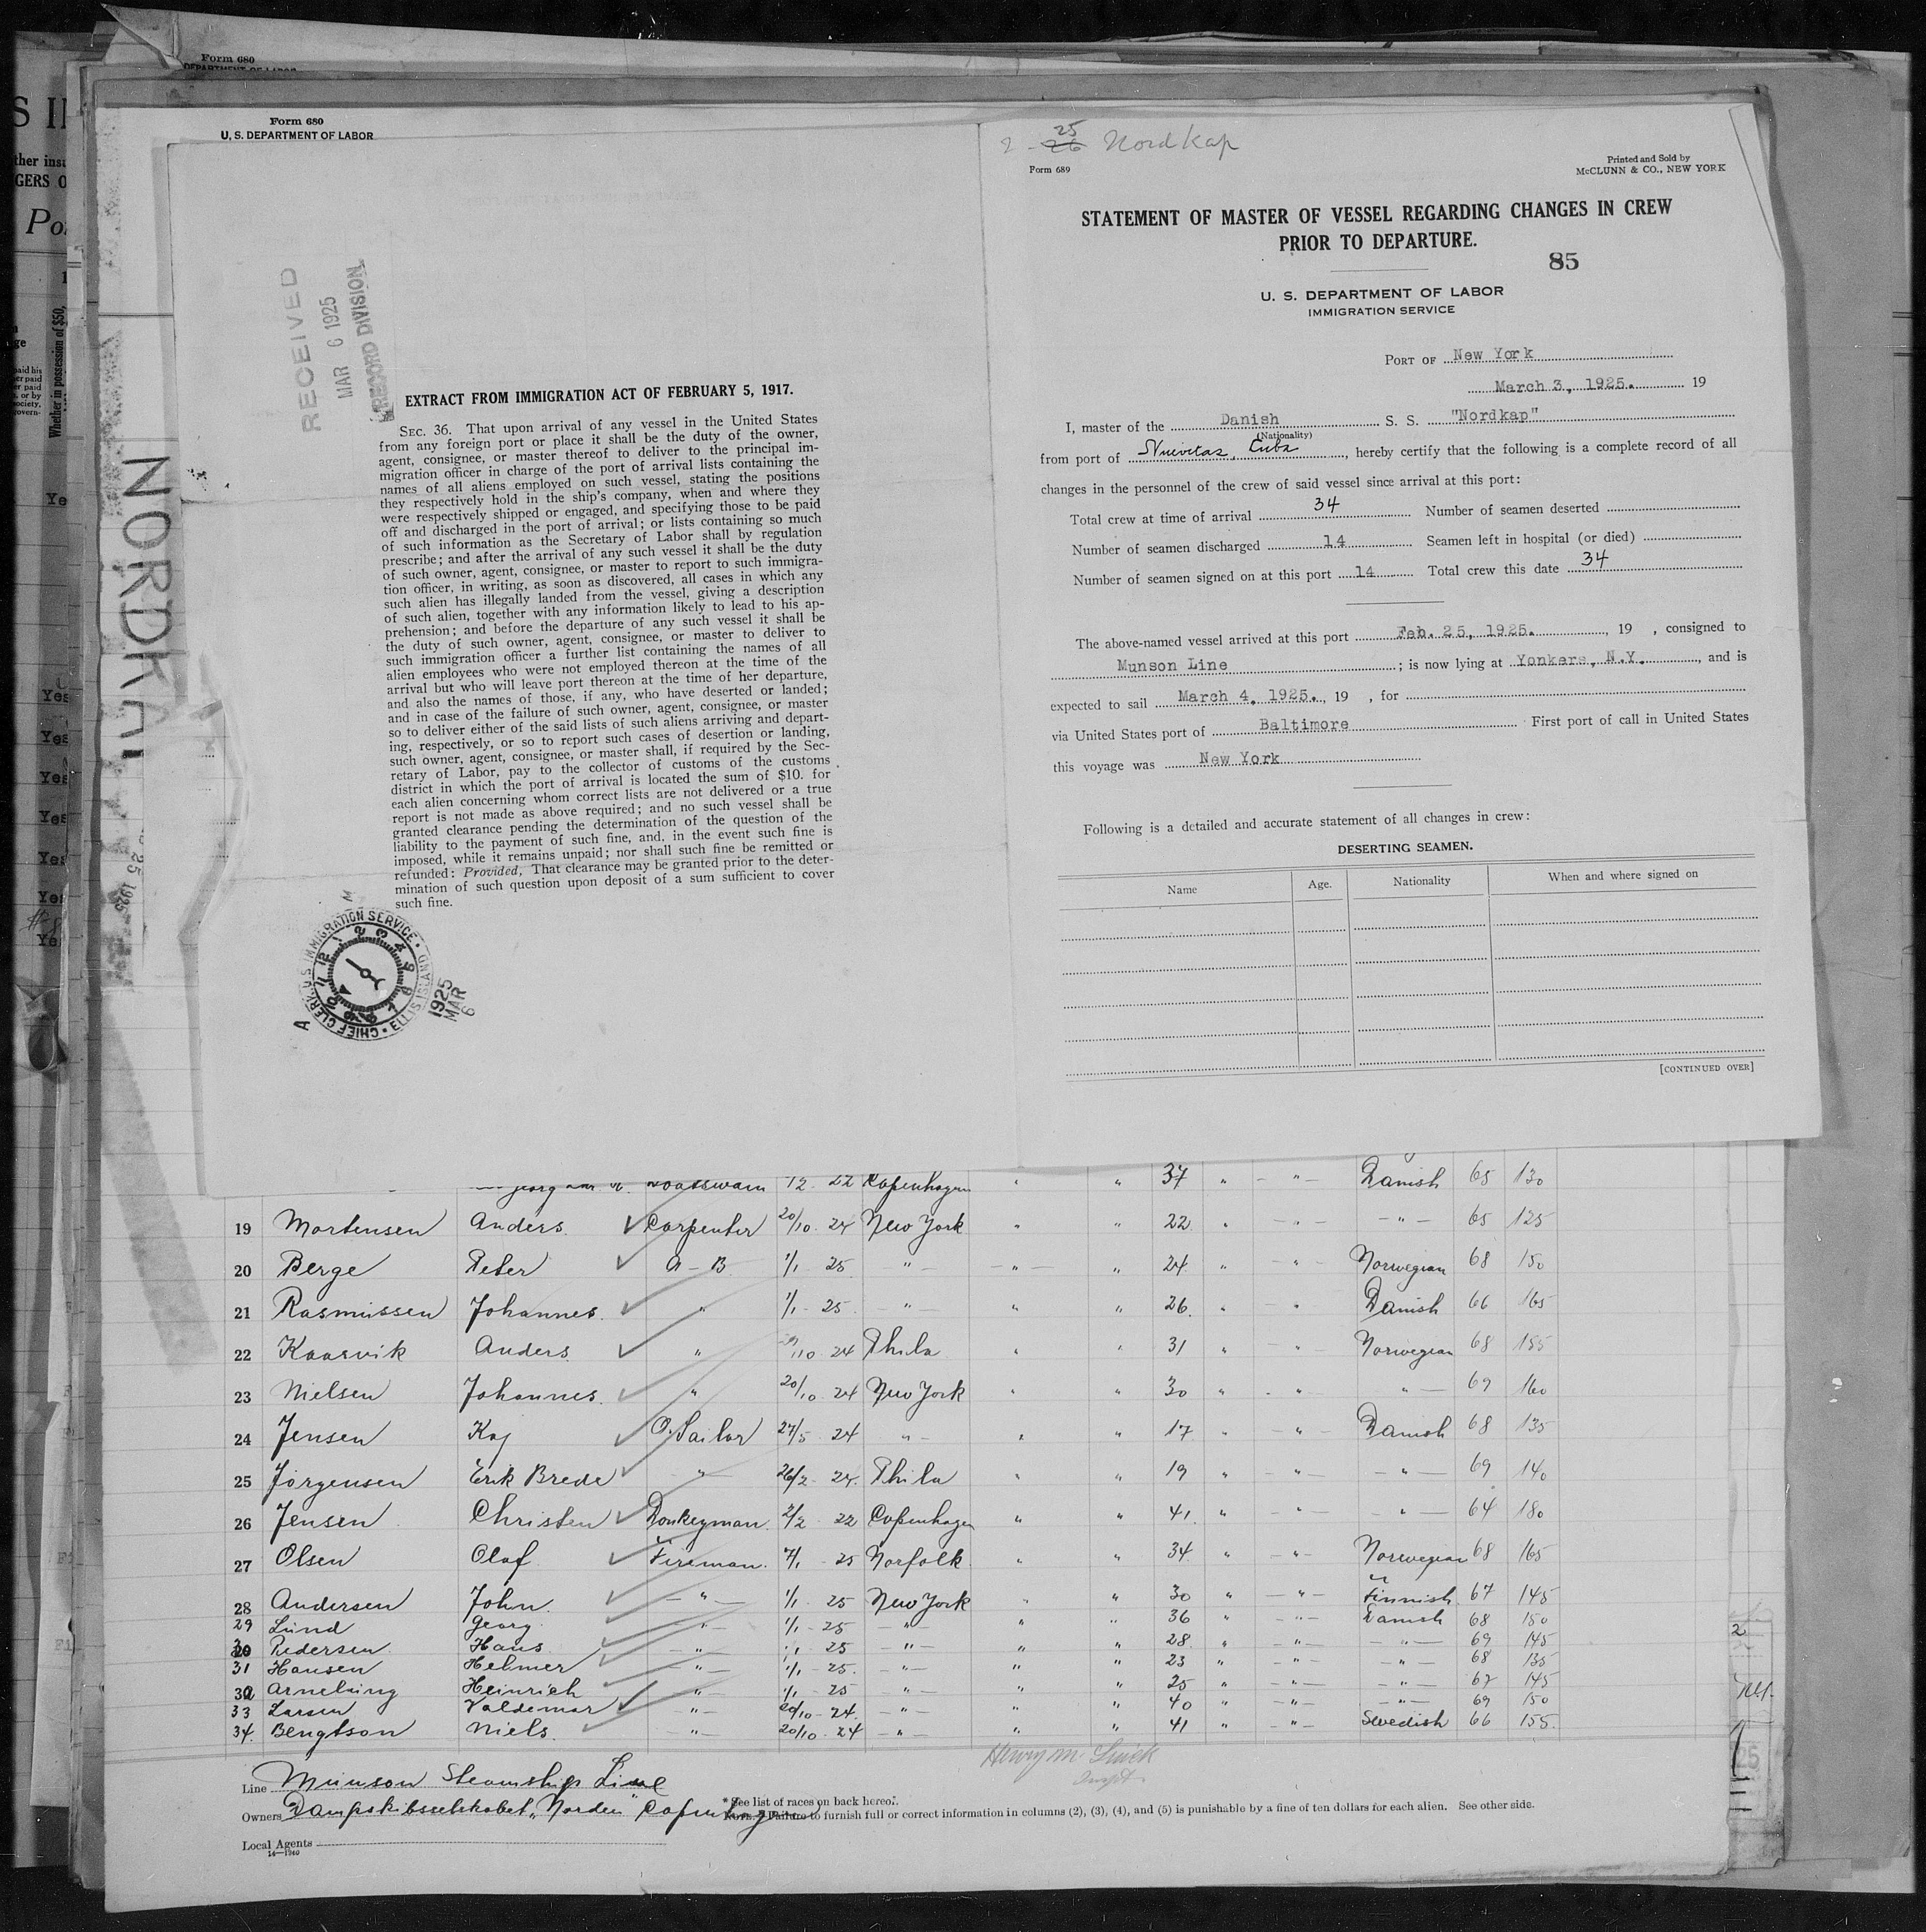 Form 680
S IN
ther insu
GERS O
Po
Whether in possession of $50,
Yes
Yes
Yes
Yes
Yes
Yes
Yes
Yes
Form 680
U. S. DEPARTMENT OF LABOR
NORDKAP
25 1925
RECEIVED
MAR 6 1925
RECORD DIVISION
EXTRACT FROM IMMIGRATION ACT OF FEBRUARY 5, 1917.
SEC. 36. That upon arrival of any vessel in the United States
from any foreign port or place it shall be the duty of the owner,
agent, consignee, or master thereof to deliver to the principal im-
migration officer in charge of the port of arrival lists containing the
names of all aliens employed on such vessel, stating the positions
they respectively hold in the ship's company, when and where they
were respectively shipped or engaged, and specifying those to be paid
off and discharged in the port of arrival; or lists containing so much
of such information as the Secretary of Labor shall by regulation
prescribe; and after the arrival of any such vessel it shall be the duty
of such owner, agent, consignee, or master to report to such immigra-
tion officer, in writing, as soon as discovered, all cases in which any
such alien has illegally landed from the vessel, giving a description
of such alien, together with any information likely to lead to his ap-
prehension; and before the departure of any such vessel it shall be
the duty of such owner, agent, consignee, or master to deliver to
such immigration officer a further list containing the names of all
alien employees who were not employed thereon at the time of the
arrival but who will leave port thereon at the time of her departure,
and also the names of those, if any, who have deserted or landed;
and in case of the failure of such owner, agent, consignee, or master
so to deliver either of the said lists of such aliens arriving and depart-
ing, respectively, or so to report such cases of desertion or landing,
such owner, agent, consignee, or master shall, if required by the Sec-
retary of Labor, pay to the collector of customs of the customs
district in which the port of arrival is located the sum of $10. for
each alien concerning whom correct lists are not delivered or a true
report is not made as above required; and no such vessel shall be
granted clearance pending the determination of the question of the
liability to the payment of such fine, and, in the event such fine is
imposed, while it remains unpaid; nor shall such fine be remitted or
refunded: Provided, That clearance may be granted prior to the deter-
mination of such question upon deposit of a sum sufficient to cover
such fine.
CHIEF CLERK, U.S. IMMIGRATION SERVICE • ELLIS ISLAND •
1925 MAR 6
2 - 26 25 Nordkap
Form 689
Printed and Sold by
McCLUNN & CO., NEW YORK
STATEMENT OF MASTER OF VESSEL REGARDING CHANGES IN CREW
PRIOR TO DEPARTURE.
85
U. S. DEPARTMENT OF LABOR
IMMIGRATION SERVICE
PORT OF New York
March 3, 1925. 19
I, master of the Danish S. S. "Nordkap"
(Nationality)
from port of Nuevitas, Cuba, hereby certify that the following is a complete record of all
changes in the personnel of the crew of said vessel since arrival at this port:
Total crew at time of arrival 34 Number of seamen deserted
Number of seamen discharged 14 Seamen left in hospital (or died)
Number of seamen signed on at this port 14 Total crew this date 34
The above-named vessel arrived at this port Feb. 25, 1925., 19 , consigned to
Munson Line ; is now lying at Yonkers, N.Y., and is
expected to sail March 4, 1925., 19 , for
via United States port of Baltimore First port of call in United States
this voyage was New York
Following is a detailed and accurate statement of all changes in crew:
DESERTING SEAMEN.
Name Age. Nationality When and where signed on
[CONTINUED OVER]
Boatswain 12 - 22 Copenhagen " " 37 " - " - Danish 65 130
19 Mortensen Anders Carpenter 20/10 - 24 New York " " 22 " - " - - " - 65 125
20 Berge Peter A - B 1/1 - 25 - " - - " - " 24 " - " - Norwegian 68 150
21 Rasmussen Johannes " 1/1 - 25 - " - " " 26 " - " Danish 66 165
22 Kaarvik Anders " /10 24 Phila " " 31 " - " - Norwegian 68 155
23 Nielsen Johannes " 20/10 - 24 New York " " 30 " - " " - 69 160
24 Jensen Kaj O. Sailor 27/5 24 " - " " 17 " - " - Danish 68 135
25 Jörgensen Erik Brede - " - 26/2 - 24 Phila " " 19 " - " - - " - 69 140
26 Jensen Christen Donkeyman 2/2 - 22 Copenhagen " " 41 " - " - - " - 64 180
27 Olsen Olaf Fireman 7/1 - 25 Norfolk " " 34 " - " - Norwegian 68 165
28 Andersen John - " - 1/1 - 25 New York " " 30 " - " - Finnish 67 145
29 Lund Georg " - 1/1 - 25 - " - " " 36 " - " - Danish 68 150
30 Pedersen Hans - " 1/1 25 - " - " " 28 " - " - - " - 69 145
31 Hansen Helmer - " - 1/1 - 25 - " - " " 23 " - " - - " - 68 135
32 Arnelung Heinrich " 1/1 - 25 - " - " " 25 " - " - - " - 67 145
33 Larsen Valdemar - " - 20/10 - 24 - " - " 40 " - " - - " - 69 150
34. Bengtson Niels - " - 20/10 - 24 - " - " " 41 " - " - Swedish 66 155
Line Munson Steamship Line
Owners Dampskibsselskabet "Norden" Copenhagen
Local Agents
14—1940
* See list of races on back hereof.
NOTE.—Failure to furnish full or correct information in columns (2), (3), (4), and (5) is punishable by a fine of ten dollars for each alien. See other side.